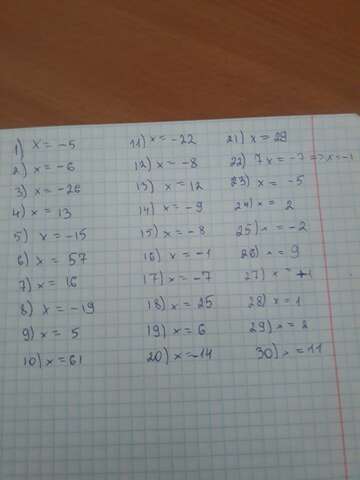 1) x = -5
2) x = -6
3) x = -26
4) x = 13
5) x = -15
6) x = 57
7) x = 16
8) x = -19
9) x = 5
10) x = 61
11) x = -22
12) x = -8
13) x = 12
14) x = -9
15) x = -8
16) x = -1
17) x = -7
18) x = 25
19) x = 6
20) x = -14
21) x = 29
22) 7x = -7 => x = -1
23) x = -5
24) x = 2
25) x = -2
26) x = 9
27) x =
28) x = 1
29) x = 2
30) x = 11